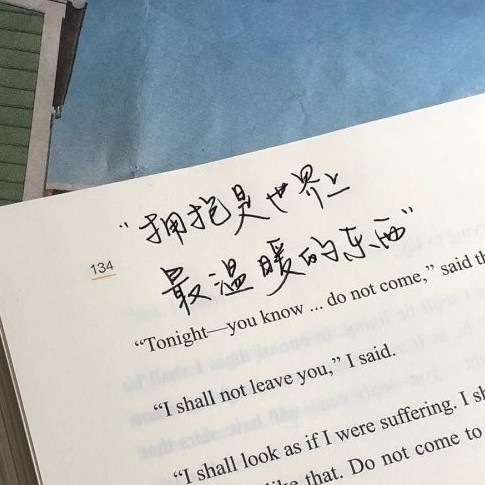 “拥抱是世界上
134
最温暖的东西”
“Tonight—you know ... do not come,” said th
“I shall not leave you,” I said.
“I shall look as if I were suffering. I sh
like that. Do not come to